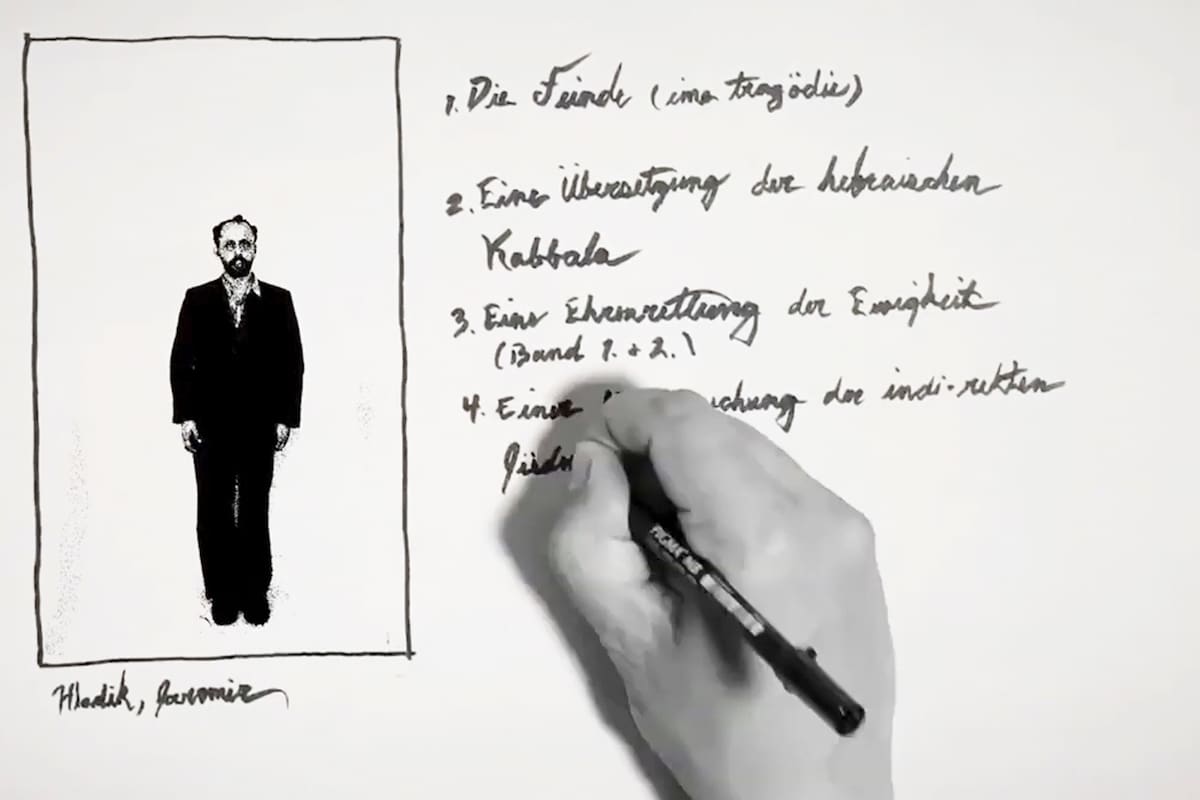 1. Die Feinde (eine tragödie)
2. Eine Übersetzung der hebraischen
Kabbala
3. Eine Ehrenrettung der Ewigkeit
(Band 1. + 2.)
4. Einer chung der indi-rekten
Hladik, Jaromir